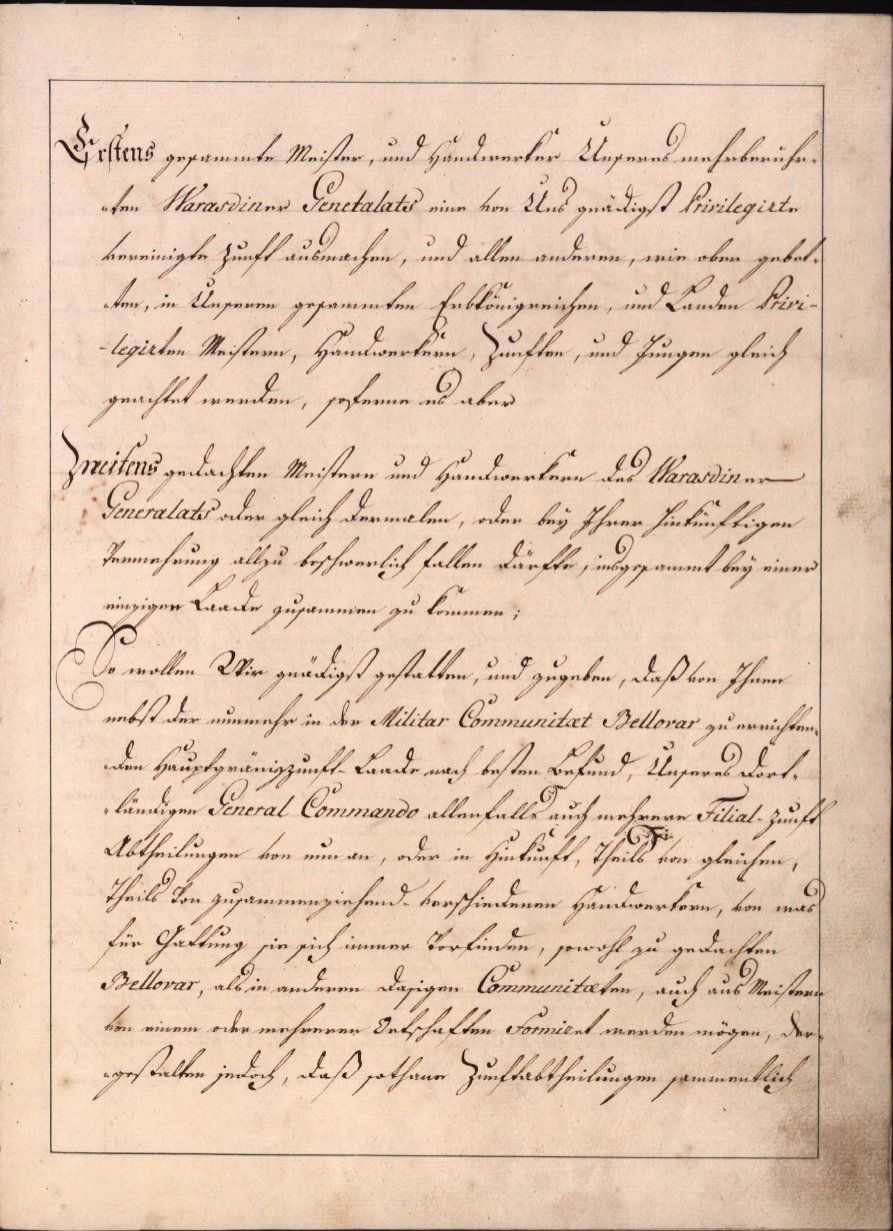 Erstens gesammte Meister, und Handwerker Unseres mehrberühr-
-ten Warasdiner Generalats eine von Uns gnädigst Privilegirte
vereinigte Zunft ausmachen, und allen anderen, wie oben gebet-
-ten, in Unseren gesammten Erbkönigreichen, und Landen Privi-
-legirten Meistern, Handwerkern, Zunften, und Jungen gleich
geachtet werden, soferne es aber
Zweitens gedachten Meistern und Handwerkern des Warasdiner
Generalats oder gleich dermalen, oder bey Ihrer hinkünftigen
Vermehrung allzu beschwerlich fallen därfte, insgesammt bey einer
einzigen Laade zusammen zu kommen;
So wollen Wir gnädigst gestatten, und zugeben, daß von Ihnen
nebst der nunmehr in der Militar Communitæt Bellovar zu errichten-
-den Hauptgränizzunft-Laade nach besten Befund, Unseres dort-
-ländigen General Commando allenfalls auch mehrere Filial-Zunft
Abtheilungen von nun an, oder in Hinkunft, theils von gleichen,
theils von zusammenziehend-verschiedenen Handwerkern, von was
für Gattung sie sich immer vorfinden, sowohl zu gedachten
Bellovar, als in anderen dasigen Communitæten, auch aus Meistern
von einem oder mehreren Ortschaften Formiret werden mögen, der-
-gestalten jedoch, daß sothane Zunftabtheilungen sammentlich